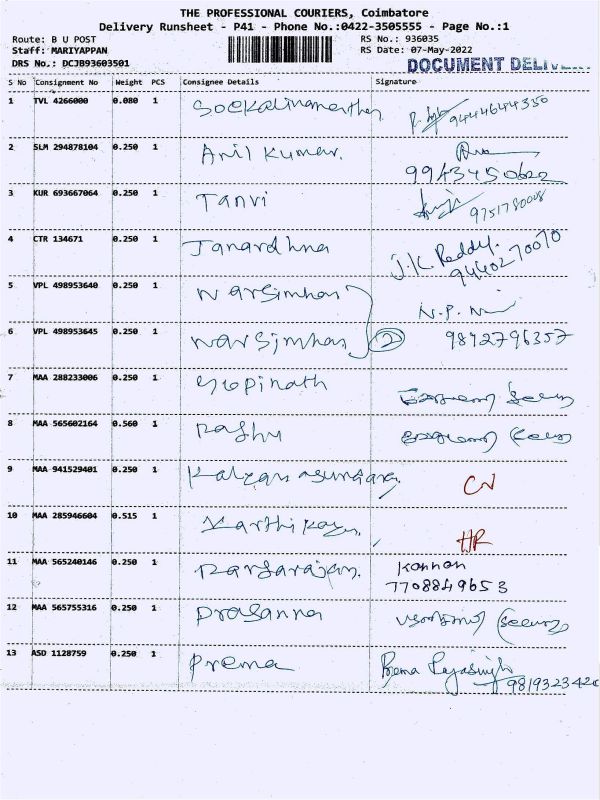 THE PROFESSIONAL COURIERS, Coimbatore
Delivery Runsheet - P41 - Phone No.:0422-3505555 - Page No.:1
Route: B U POST RS No.: 936035
Staff: MARIYAPPAN RS Date: 07-May-2022
DRS No.: DCJB93603501 DOCUMENT DELIV
S No Consignment No Weight PCS Consignee Details Signature
1 TVL 4266000 0.080 1 9444644350
2 SLM 294878104 0.250 1 Anil Kumar. 9943450622
3 KUR 693667064 0.250 1 Tanvi 9751780008
4 CTR 134671 0.250 1 Janardhna J.K. Reddy. 9440270070
5 VPL 498953640 0.250 1 Narsimhan N.P.
6 VPL 498953645 0.250 1 Narsimhan 2 9842796357
7 MAA 288233006 0.250 1 Gopinath
8 MAA 565602164 0.560 1 Raghu
9 MAA 941529401 0.250 1 Kalyanasundaram
10 MAA 285946604 0.515 1 Karthikayn. HR
11 MAA 565240146 0.250 1 Rangarajan. Kannan
7708849653
12 MAA 565755316 0.250 1 Prasanna
13 ASD 1128759 0.250 1 Prema Prema Rajasingh
981932342